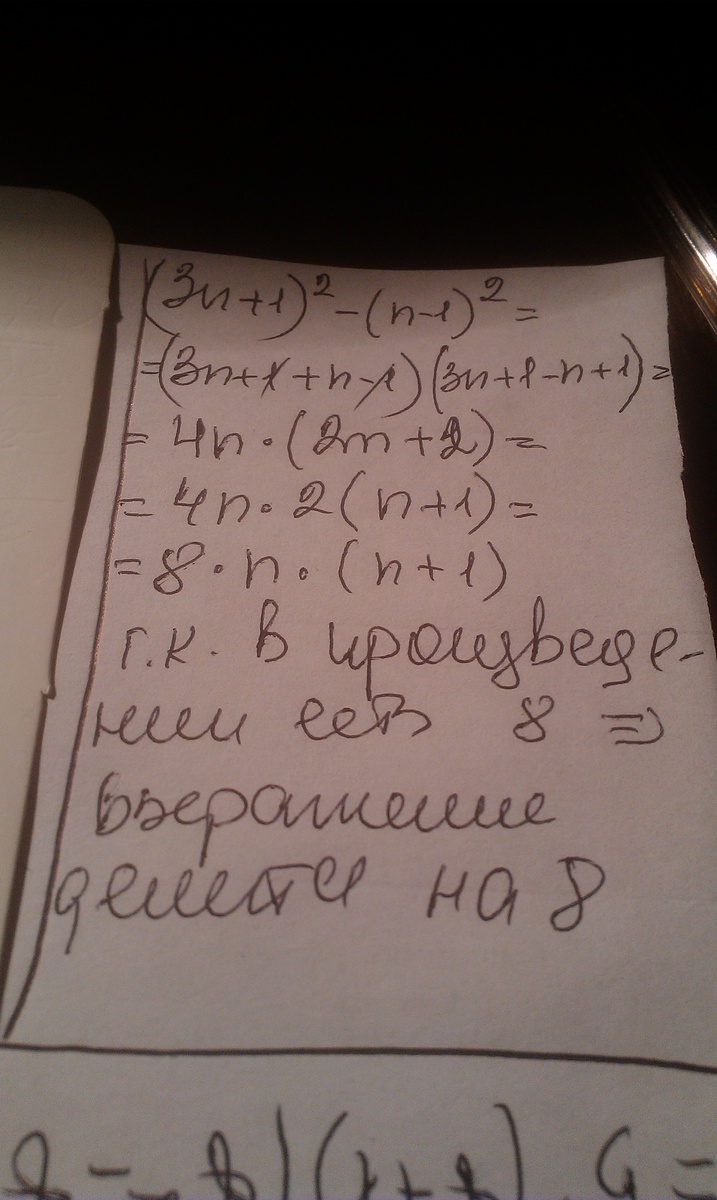 (3n+1)² - (n-1)² =
= (3n+1+n-1)(3n+1-n+1) =
= 4n · (2n+2) =
= 4n · 2(n+1) =
= 8 · n · (n+1)
т.к. в произведе-
нии есть 8 ⇒
выражение
делится на 8